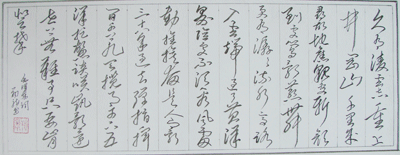 久有凌云志重上
井冈山千里来
寻故地旧貌变新颜
到处莺歌燕舞
更有潺潺流水高路
入云端过了黄洋
界险处不须看风雷
动旌旗奋是人寰
三十八年过去弹指一挥
间可上九天揽月可下五
洋捉鳖谈笑凯歌还
世上无难事只要肯
登攀